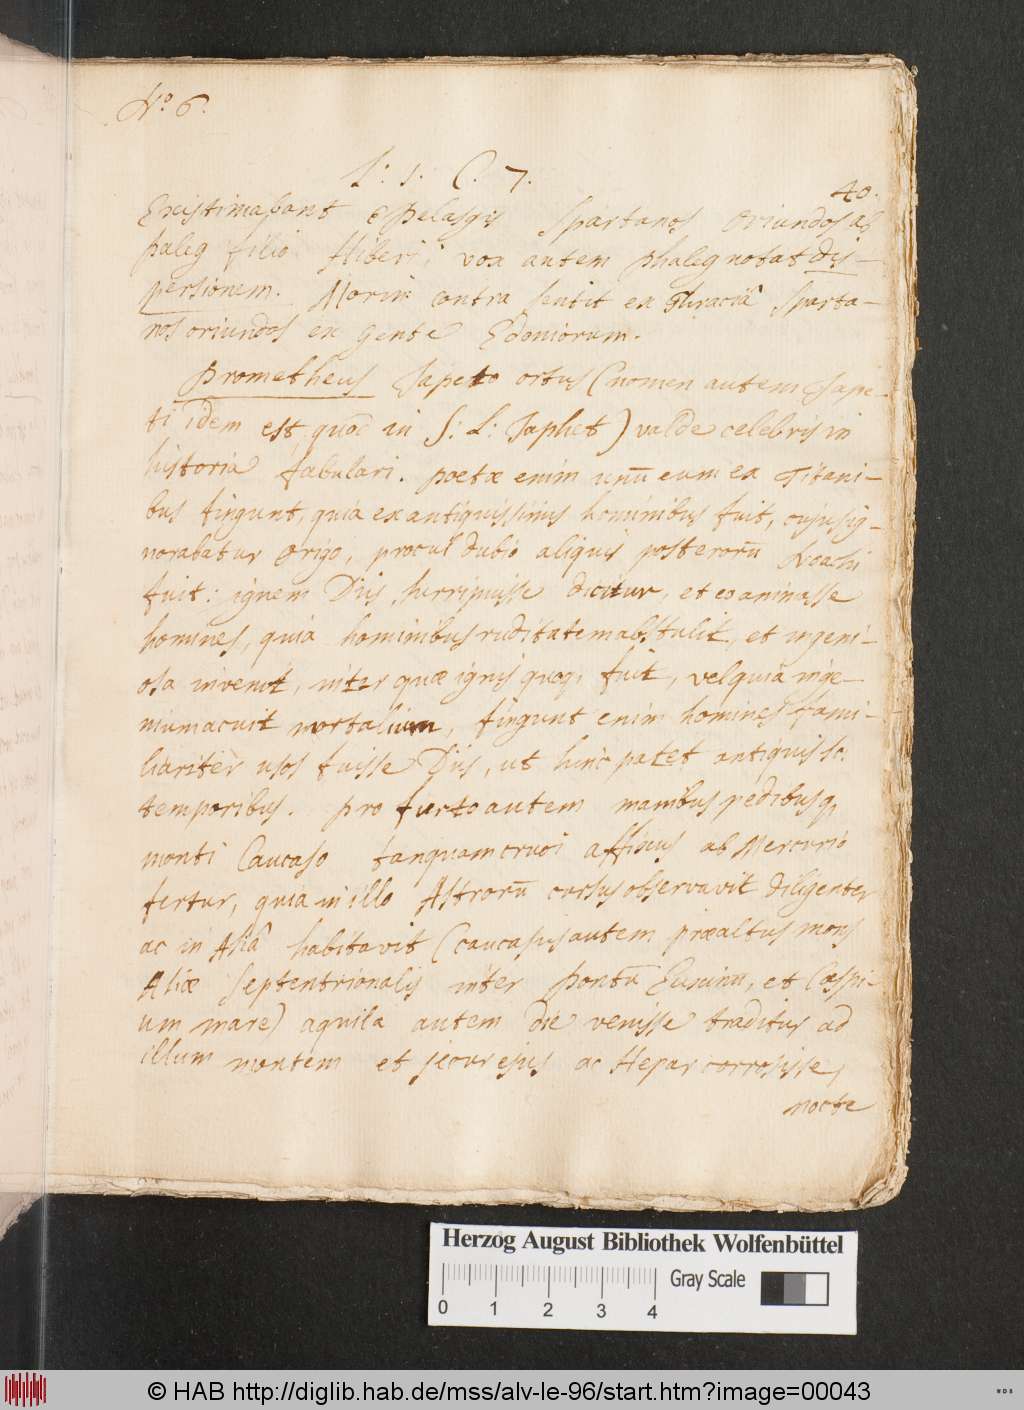 No. 6.
L: 1: C. 7.
40.
Existimabant è Pelasgis Spartanos oriundos ab
paleg filio Hiberi; vox autem phaleg notat dis-
persionem. Morin contra sentit ex Thraciâ Sparta-
nos oriundos ex gente Edoniorum.
Prometheus Japeto ortus (nomen autem Jape-
ti idem est quoc in S: L: Japhet) valde celebris in
historia fabulari. poetæ enim unū eum ex Titani-
bus fingunt, quia ex antiquissimis hominibus fuit, cujus ig-
norabatur origo, procul dubio aliquis posterorū Noachi
fuit: ignem Diis surripuisse dicitur, et exanimasse
homines, quia hominibus ruditatem abstulit, et ingeni-
osa invenit, inter quæ ignis quoq, fuit, vel quia inge-
nium acuit mortalium, fingunt enim homines fami-
liariter usos fuisse Diis, ut hinc patet antiquis sc.
temporibus. pro furto autem manibus pedibusq,
monti Caucaso tanquam cruci affixus ab Mercurio
fertur, quia in illo Astrorū cursus observavit diligenter
ac in Asiâ habitavit (caucasus autem præaltus mons
Asiæ septentrionalis inter Pontū Euxinū, et Caspi-
um mare) aquila autem die venisse traditur ad
illum montem et jecur ejus ac Hepar corrosisse,
nocte
Herzog August Bibliothek Wolfenbüttel
Gray Scale
0 1 2 3 4
© HAB http://diglib.hab.de/mss/alv-le-96/start.htm?image=00043